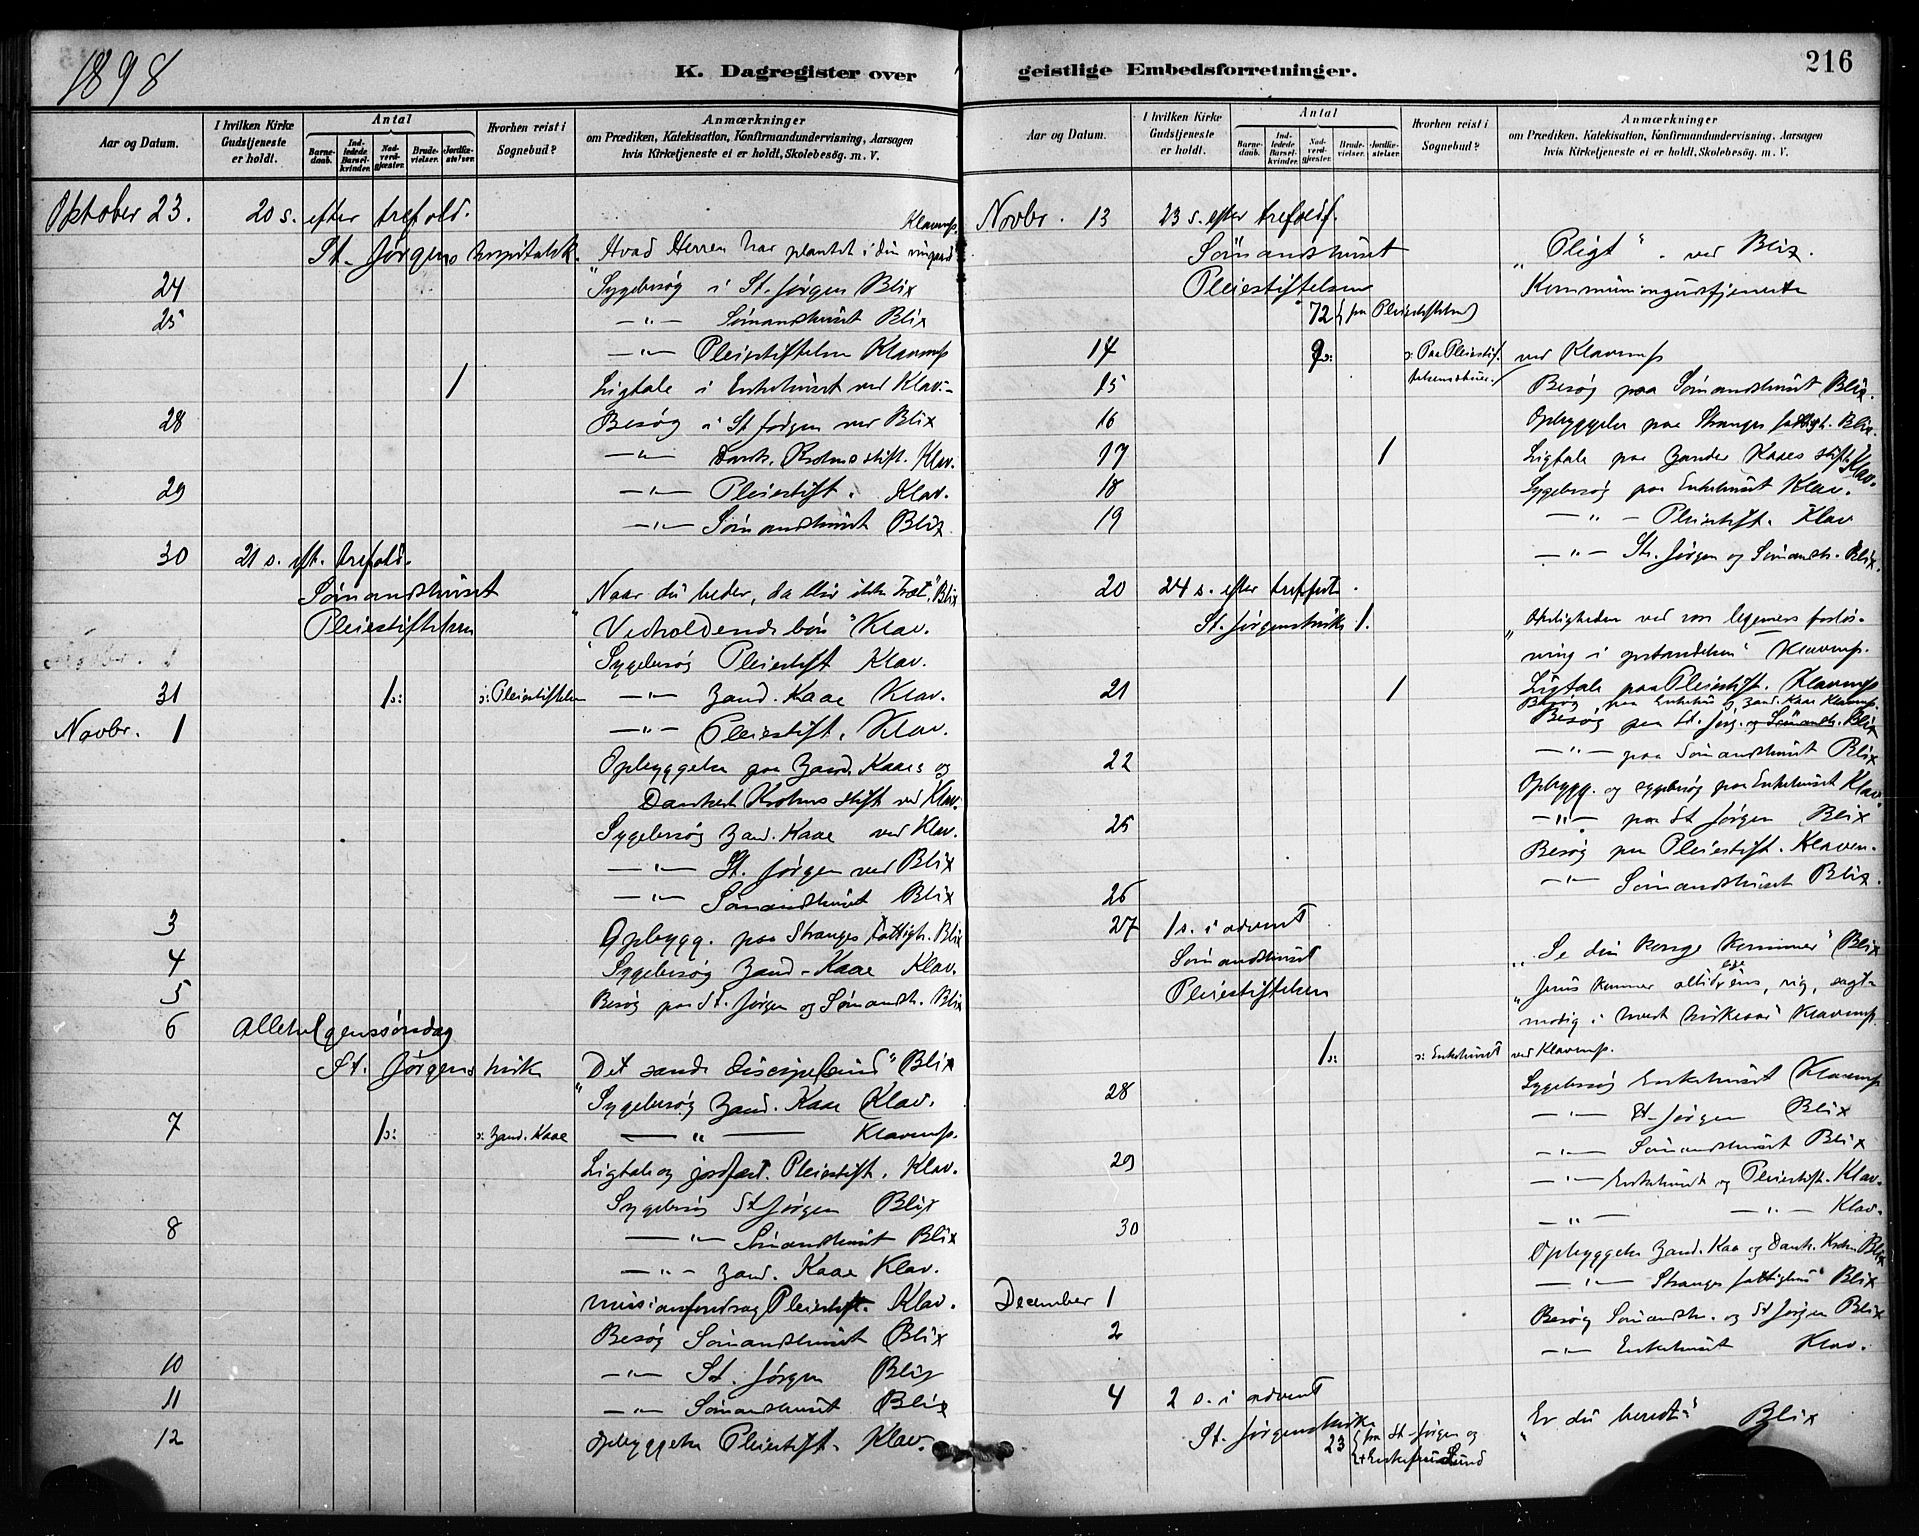 1898
K. Dagregister over
Aar og Datum.
I hvilken Kirke Gudstjeneste er holdt.
Antal
Barnedaab.
Indledede Barselkvinder.
Nadverdgjester.
Brudevielser.
Jordfæstelser.
Hvorhen reist i Sognebud?
Anmærkninger
om Prædiken, Katekisation, Konfirmandundervisning, Aarsagen
hvis Kirketjeneste ei er holdt, Skolebesøg. m. V.
Oktober 23. 20 s. efter trefold. Klavenp.
St. Jørgens hospitalsk. Hvad Herren har plantet i din vingaard"
24 Sygebesøg i St. Jørgen Blix
25 —"— Sömandshuset Blix
—"— Pleiestiftelsen Klavenp
1 Ligtale i Enkehuset ved Klav.
28 Besøg i St Jørgen ved Blix
—"— Dank. Krohns stift. Klav.
29 —"— Pleiestift. Klav.
—"— Sömandshuset Blix.
30 21 s. eft. trefold.
Sömandshuset Naar du beder, da bliv ikke træt." Blix
Pleiestiftelsen "Vedholdende bön" Klav.
Novbr. 1 Sygebesøg Pleiestift Klav.
31 1 ɔ: ɔ: Pleiestiftelsen —"— Zand. Kaae Klav.
Novbr. 1 —"— Pleiestift. Klav.
Opbyggelse paa Zand. Kaaes og
Dankert Krohns stift ved Klav.
Sygebesøg Zand. Kaae ved Klav.
—"— St. Jørgen ved Blix
—"— Sömandshuset Blix
3 Opbygg. paa Stranges Fattigh. Blix
4 Sygebesøg Zand. Kaae Klav.
5 Besøg paa St. Jørgen og Sömandsh. Blix
6 Allehelgenssöndag
St. Jørgens kirke Det sande discipelsind" Blix
"Sygebesøg Zand. Kaae Klav.
7 1 ɔ: ɔ: Zand. Kaae —"— Klavenp.
Ligtale og jordfæst. Pleiestift. Klav.
Sygebesøg St Jørgen Blix
8 —"— Sömandshuset Blix
—"— Zand. Kaae Klav.
Missionsforedrag Pleiestift. Klav.
Besøg Sömandshuset Blix
10 —"— St. Jørgen Blix
11 —"— Sömandshuset Blix
12 Opbyggelse Pleiestift. Klav.
geistlige Embedsforretninger.
216
Aar og Datum.
I hvilken Kirke Gudstjeneste er holdt.
Antal
Barnedaab.
Indledede Barselkvinder.
Nadverdgjester.
Brudevielser.
Jordfæstelser.
Hvorhen reist i Sognebud?
Anmærkninger
om Prædiken, Katekisation, Konfirmandundervisning, Aarsagen
hvis Kirketjeneste ei er holdt, Skolebesøg. m. V.
Novbr. 13 23 s. efter trefoldf.
Sömandshuset „Pligt" ved Blix.
Pleiestiftelsen Kommuniongudstjeneste
72 (fra Pleiestiftelsen)
14 ɔ: Paa Pleiestif- ved Klavenp
15 Besøg paa Sömandshuset Blix.
16 Opbyggelse paa Stranges fattigh. Blix.
17 1 Ligtale paa Zander Kaaes stift Klav.
18 Sygebesøg paa Enkehuset Klav.
19 —"— Pleiestift. Klav
—"— St. Jørgen og Sömandsh. Blix.
20 24 s. efter trefold.
St. Jørgenskirke 1. „Herligheden ved vor legemers forløs-
ning i opstandelsen" Klavenp.
21 1 Ligtale paa Pleiestift. Klavenp
Besøg paa Enkehus og Zand. Kaae Klavenp.
Besøg paa St. Jörg. og Sömandsh. Blix
22 —"— paa Sömandshuset Blix
Opbygg. og sygebesøg paa Enkehuset Klav.
25 —"— paa St Jørgen Blix
Besøg paa Pleiestift. Klaven.
26 —"— Sömandshuset Blix.
27 1 s. i advent
Sömandshuset „Se din konge kommer" Blix
Pleiestiftelsen „Jesus kommer altid ens, rig, sagt-
modig i hvert kirkeaar" Klavenp.
1 ɔ: ɔ: Enkehuset ved Klavenp.
28 Sygebesøg Enkehuset Klavenp
—"— St. Jørgen Blix
—"— Sömandshuset Blix
29 —"— Enkehuset og Pleiestift. Klav.
30 —"— —"— Klav.
Opbyggelse Zand. Kaa og Dank. Krohn Blix
December 1 —"— Stranges fattighus Blix
2 Besøg Sömandsh. og St Jørgen Blix
—"— Enkehuset Klav.
4 2 s. i advent
St. Jørgenskirke „Er du beredt" Blix
23 (fra St. Jørgen og